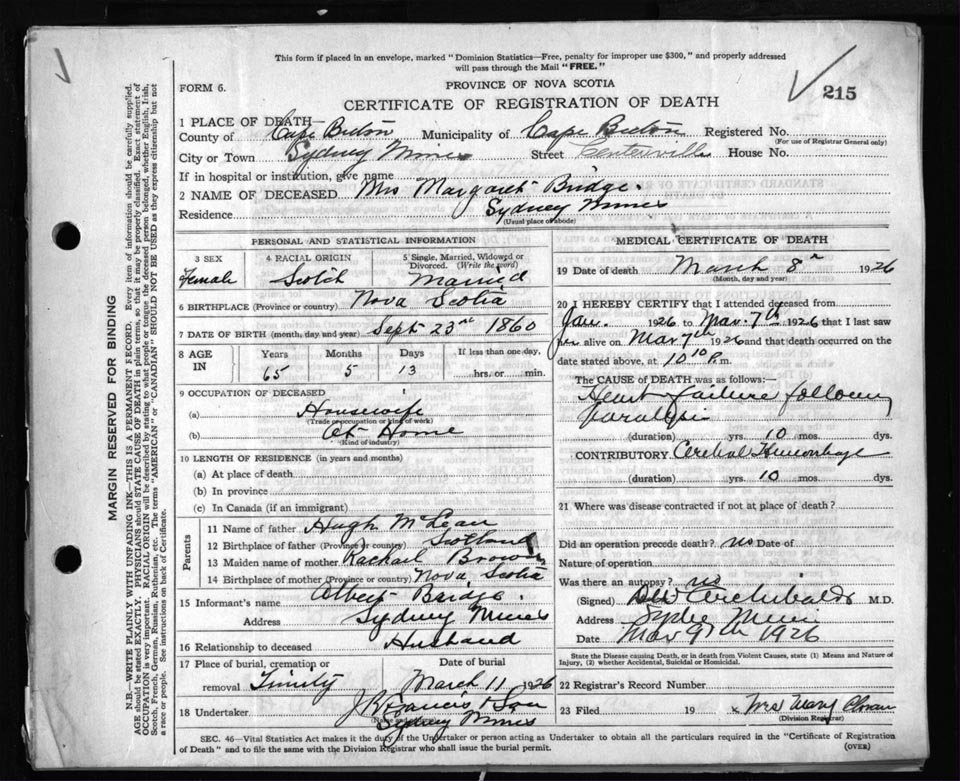 This form if placed in an envelope, marked "Dominion Statistics—Free, penalty for improper use $300," and properly addressed
will pass through the Mail "FREE."
FORM 6.
PROVINCE OF NOVA SCOTIA
215
CERTIFICATE OF REGISTRATION OF DEATH
1 PLACE OF DEATH—
County of Cape Breton Municipality of Cape Breton Registered No.
(For use of Registrar General only)
City or Town Sydney Mines Street Centerville House No.
If in hospital or institution, give name
2 NAME OF DECEASED Mrs Margaret Bridge.
Residence Sydney Mines
(Usual place of abode)
PERSONAL AND STATISTICAL INFORMATION
3 SEX
Female
4 RACIAL ORIGIN
Scotch
5 Single, Married, Widowed or
Divorced. (Write the word)
Married
6 BIRTHPLACE (Province or country) Nova Scotia
7 DATE OF BIRTH (month, day and year) Sept 23rd 1860
8 AGE
IN
Years Months Days If less than one day,
65 5 13 hrs. or min.
9 OCCUPATION OF DECEASED
(a) Housewife
(Trade or occupation or kind of work)
(b) At Home
(Kind of industry)
10 LENGTH OF RESIDENCE (in years and months)
(a) At place of death
(b) In province
(c) In Canada (if an immigrant)
Parents
11 Name of father Hugh McLean
12 Birthplace of father (Province or country) Scotland
13 Maiden name of mother Rachael Brown
14 Birthplace of mother (Province or country) Nova Scotia
15 Informant's name Albert Bridge.
Address Sydney Mines
16 Relationship to deceased Husband
17 Place of burial, cremation or
removal Trinity
Date of burial
March 11 1926
18 Undertaker J R Francis & Son
Sydney Mines
MEDICAL CERTIFICATE OF DEATH
19 Date of death March 8th 1926
(Month, day and year)
20 I HEREBY CERTIFY that I attended deceased from
Jan. 1926 to Mar. 7th 1926 that I last saw
her alive on Mar 7th 1926 and that death occurred on the
date stated above, at 10 10 P.m.
The CAUSE OF DEATH was as follows:
Heart failure following
paralysis
(duration) yrs. 10 mos. dys.
CONTRIBUTORY Cerebral Hemorrhage
(duration) yrs. 10 mos. dys.
21 Where was disease contracted if not at place of death?
Did an operation precede death? no Date of
Nature of operation
Was there an autopsy? no
(Signed) Archibald M.D.
Address
Date Mar 9th 1926
State the Disease causing Death, or in death from Violent Causes, state (1) Means and Nature of
Injury, (2) whether Accidental, Suicidal or Homicidal.
22 Registrar's Record Number
23 Filed 19 Mrs Mary
(Division Registrar)
SEC. 46—Vital Statistics Act makes it the duty of the Undertaker or person acting as Undertaker to obtain all the particulars required in the "Certificate of Registration
of Death" and to file the same with the Division Registrar who shall issue the burial permit.
(OVER)
MARGIN RESERVED FOR BINDING
N.B.—WRITE PLAINLY WITH UNFADING INK—THIS IS A PERMANENT RECORD. Every item of information should be carefully supplied.
AGE should be stated EXACTLY. PHYSICIANS should STATE CAUSE OF DEATH in plain terms, so that it may be properly classified. Exact statement of
OCCUPATION is very important. RACIAL ORIGIN will be described by stating to what people or tongue the deceased person belonged, whether English, Irish,
Scotch, French, German, Russian, Ruthenian, etc. The terms "AMERICAN" or "CANADIAN" SHOULD NOT BE USED as they express citizenship but not
a race or people. See instructions on back of Certificate.